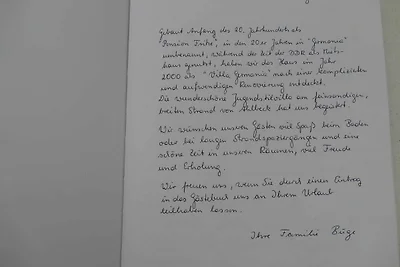 Gebaut Anfang des 20. Jahrhunderts als
"Pension Fritze", in den 20er Jahren in "Germania"
umbenannt, während der Zeit der DDR als Miets-
haus genutzt, haben wir das Haus im Jahr
2000 als "Villa Germania" nach einer kompletten
und aufwendigen Renovierung entdeckt.
Die wunderschöne Jugendstilvilla am feinsandigen,
breiten Strand von Ahlbeck hat uns begeistert.
Wir wünschen unseren Gästen viel Spaß beim Baden
oder bei langen Strandspaziergängen und eine
schöne Zeit in unseren Räumen, viel Freude
und Erholung.
Wir freuen uns, wenn Sie durch einen Eintrag
in das Gästebuch uns an Ihrem Urlaub
teilhaben lassen.
Ihre Familie Büge